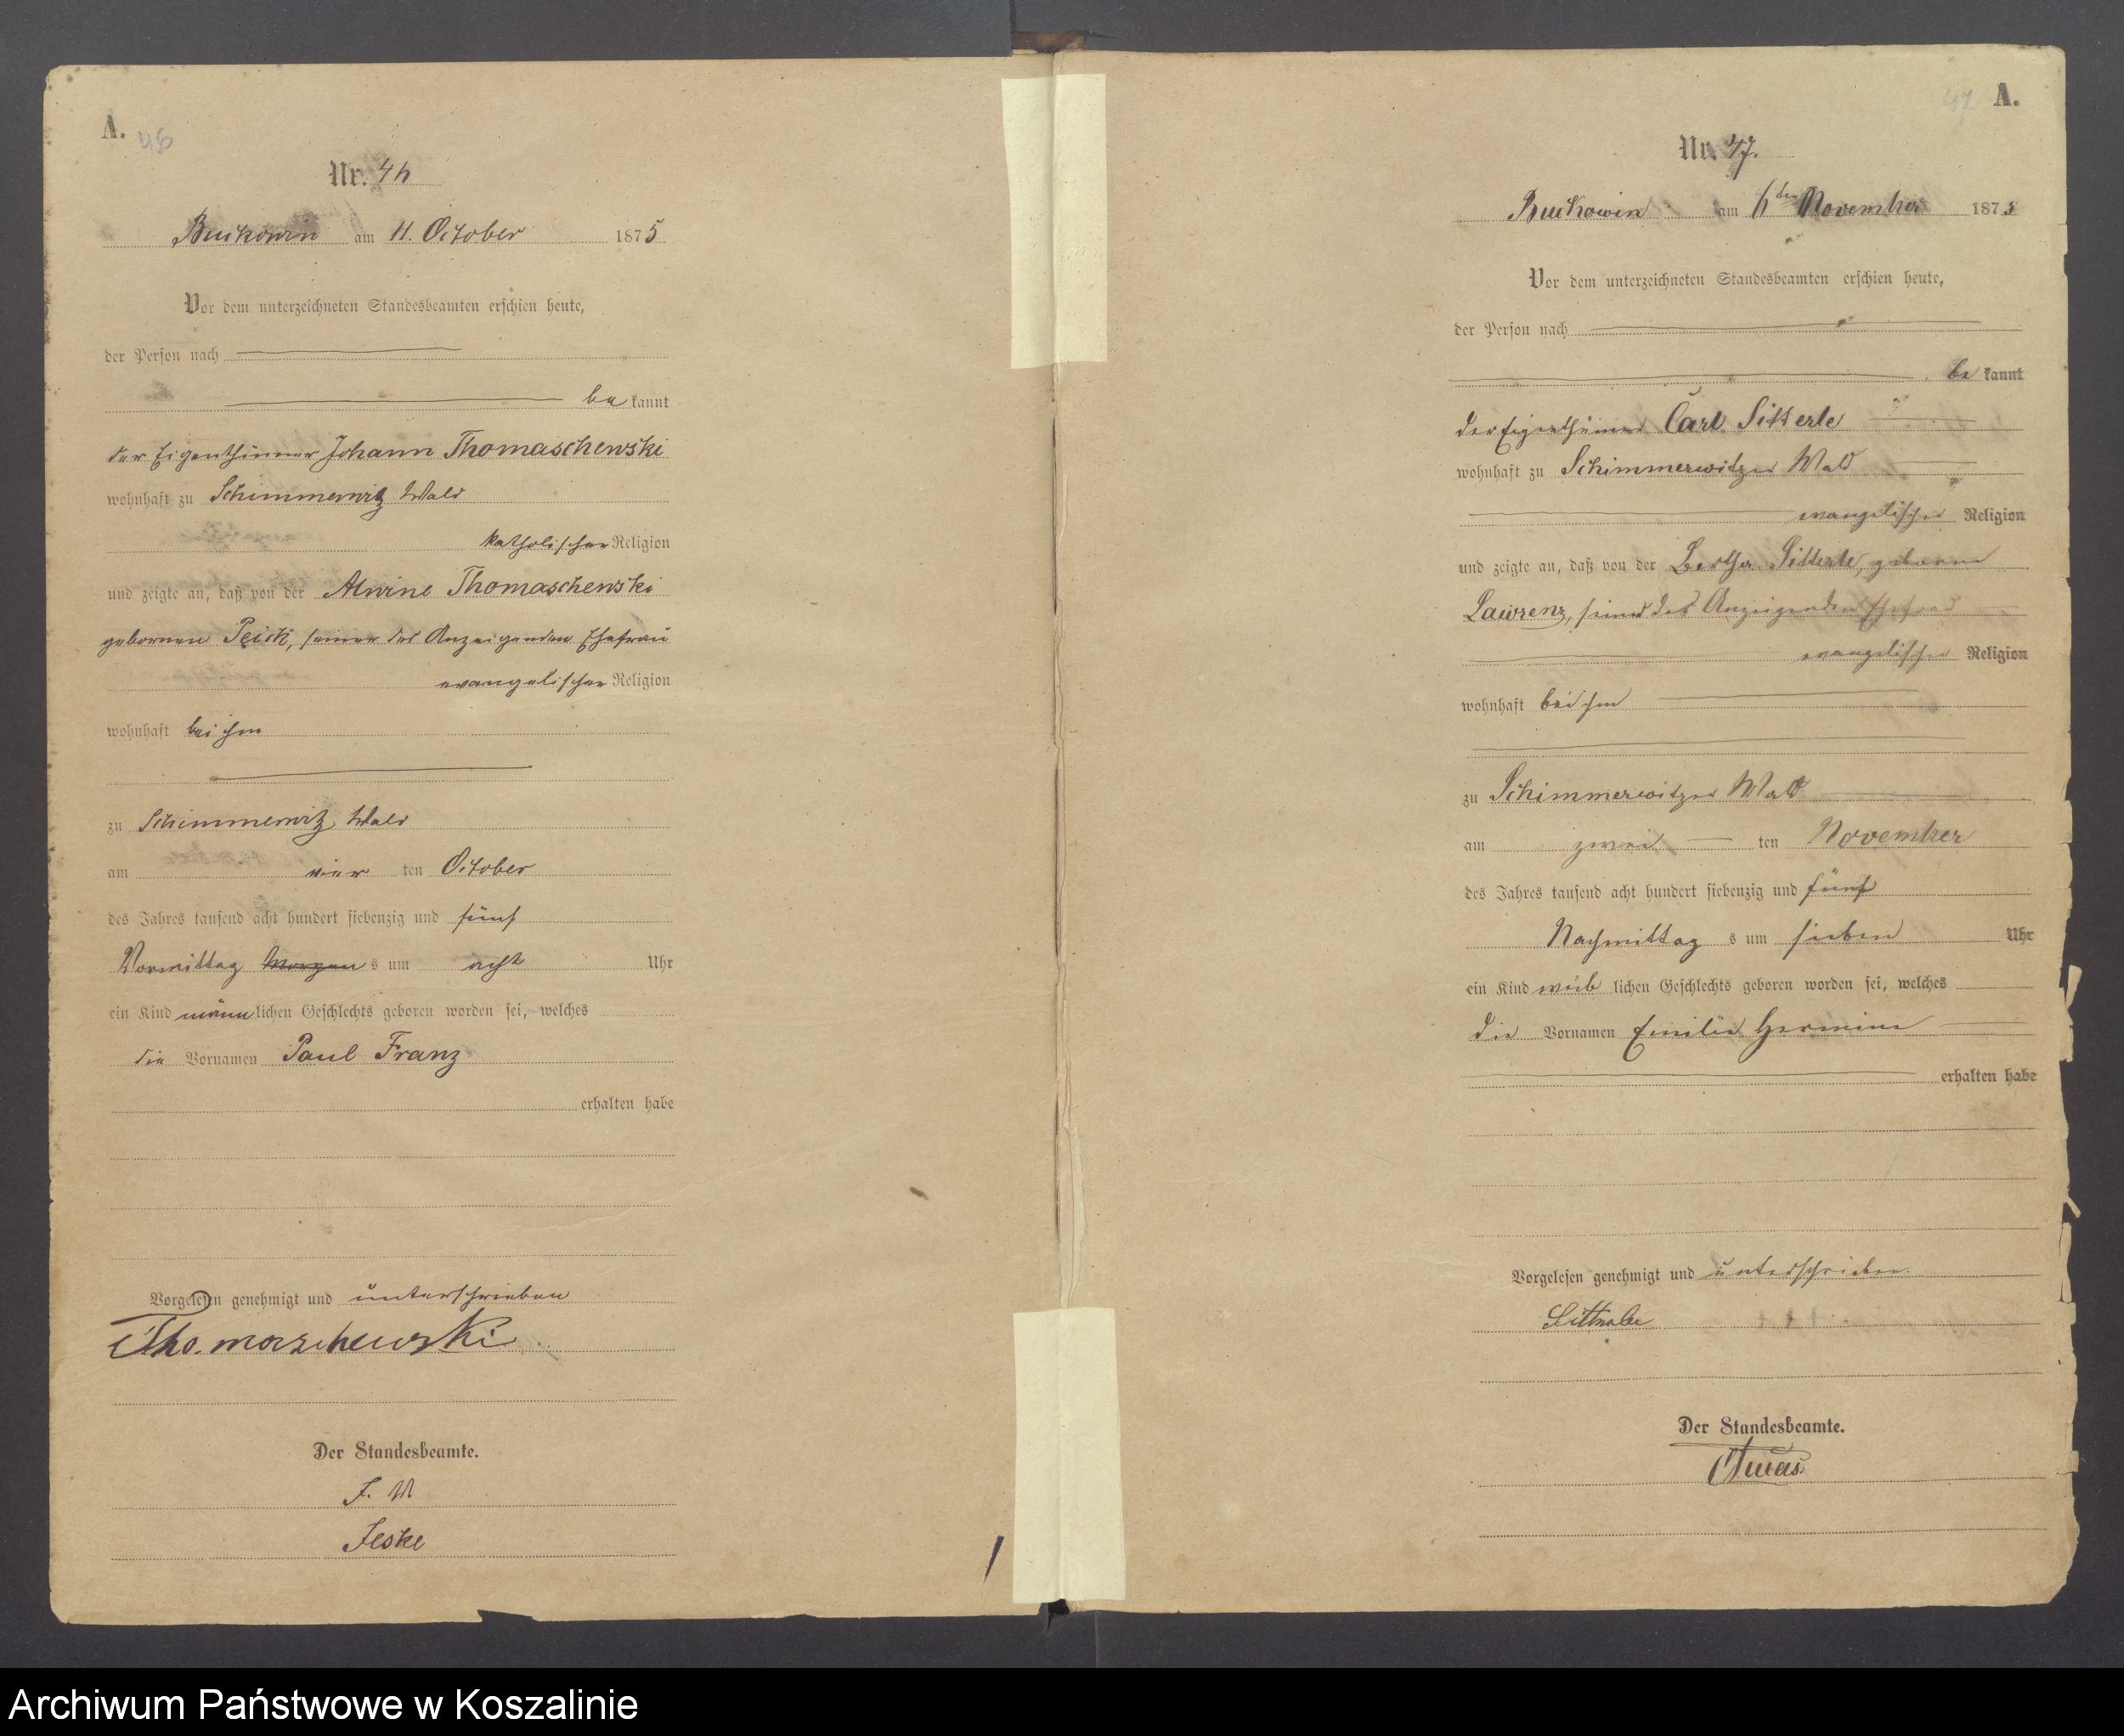 A. 46
Nr. 46
Buckowin am 11. October 1875
Vor dem unterzeichneten Standesbeamten erschien heute,
der Person nach
be kannt
der Eigenthümer Johann Thomaschewski
wohnhaft zu Schimmerwitz Wald
katholischer Religion
und zeigte an, daß von der Alwine Thomaschewski
gebornen Peick, seiner des Anzeigenden Ehefrau
evangelischer Religion
wohnhaft bei ihm
zu Schimmerwitz Wald
am vier ten October
des Jahres tausend acht hundert siebenzig und fünf
Vormittag Morgen s um acht Uhr
ein Kind männ lichen Geschlechts geboren worden sei, welches
die Vornamen Paul Franz
erhalten habe
Vorgelesen genehmigt und unterschrieben
Thomaschewski
Der Standesbeamte.
Jeske
47 A.
Nr. 47.
Buckowin am 6ten November 1875
Vor dem unterzeichneten Standesbeamten erschien heute,
der Person nach
be kannt
der Eigenthümer Carl Sitterle
wohnhaft zu Schimmerwitzer Wald
evangelischer Religion
und zeigte an, daß von der Bertha Sitterle, geborne
Lawrenz, seiner des Anzeigenden Ehefrau
evangelischer Religion
wohnhaft bei ihm
zu Schimmerwitzer Wald
am zwei ten November
des Jahres tausend acht hundert siebenzig und fünf
Nachmittag s um sieben Uhr
ein Kind weib lichen Geschlechts geboren worden sei, welches
die Vornamen Emilie Hermine
erhalten habe
Vorgelesen genehmigt und unterschrieben.
Der Standesbeamte.
Archiwum Państwowe w Koszalinie